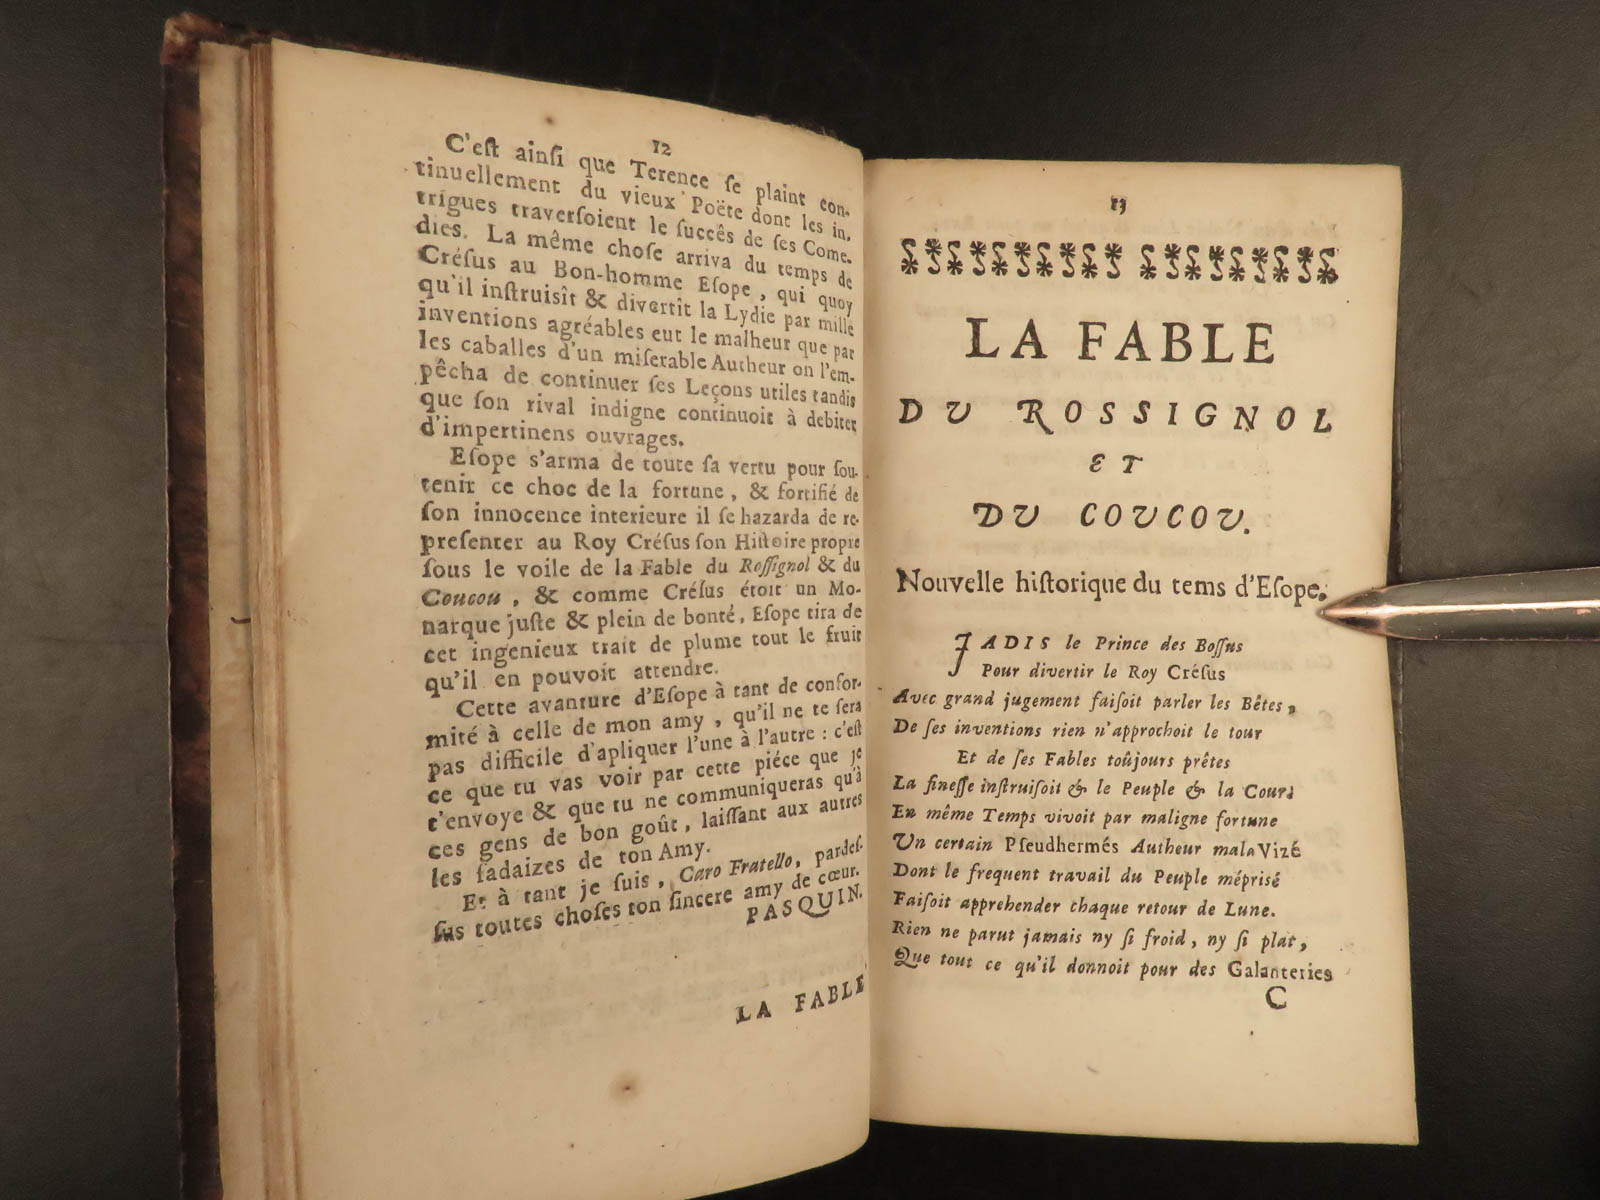 12
C'eſt ainſi que Terence ſe plaint con-
tinuellement du vieux Poëte dont les in-
trigues traverſoient le ſuccês de ſes Come-
dies. La même choſe arriva du temps de
Créſus au Bon-homme Eſope, qui quoy
qu'il inſtruisît & divertît la Lydie par mille
inventions agréables eut le malheur que par
les caballes d'un miſerable Autheur on l'em-
pêcha de continuer ſes Leçons utiles tandis
que ſon rival indigne continuoit à debiter
d'impertinens ouvrages.
Eſope s'arma de toute ſa vertu pour ſou-
tenir ce choc de la fortune, & fortifié de
ſon innocence interieure il ſe hazarda de re-
preſenter au Roy Créſus ſon Hiſtoire propre
ſous le voile de la Fable du Roſſignol & du
Coucou, & comme Créſus étoit un Mo-
narque juſte & plein de bonté, Eſope tira de
cet ingenieux trait de plume tout le fruit
qu'il en pouvoit attendre.
Cette avanture d'Eſope à tant de confor-
mité à celle de mon amy, qu'il ne te ſera
pas difficile d'apliquer l'une à l'autre : c'eſt
ce que tu vas voir par cette piéce que je
t'envoye & que tu ne communiqueras qu'à
ces gens de bon goût, laiſſant aux autres
les fadaizes de ton Amy.
Et à tant je ſuis, Caro Fratello, pardeſ-
ſus toutes choſes ton ſincere amy de cœur.
PASQUIN.
LA FABLE
13
LA FABLE
DU ROSSIGNOL
ET
DU COUCOU.
Nouvelle hiſtorique du tems d'Eſope.
JADIS le Prince des Boſſus
Pour divertir le Roy Créſus
Avec grand jugement faiſoit parler les Bêtes,
De ſes inventions rien n'approchoit le tour
Et de ſes Fables toûjours prêtes
La fineſſe inſtruiſoit & le Peuple & la Cour:
En même Temps vivoit par maligne fortune
Un certain Pſeudhermés Autheur mala Vizé
Dont le frequent travail du Peuple mépriſé
Faiſoit apprehender chaque retour de Lune.
Rien ne parut jamais ny ſi froid, ny ſi plat,
Que tout ce qu'il donnoit pour des Galanteries
C